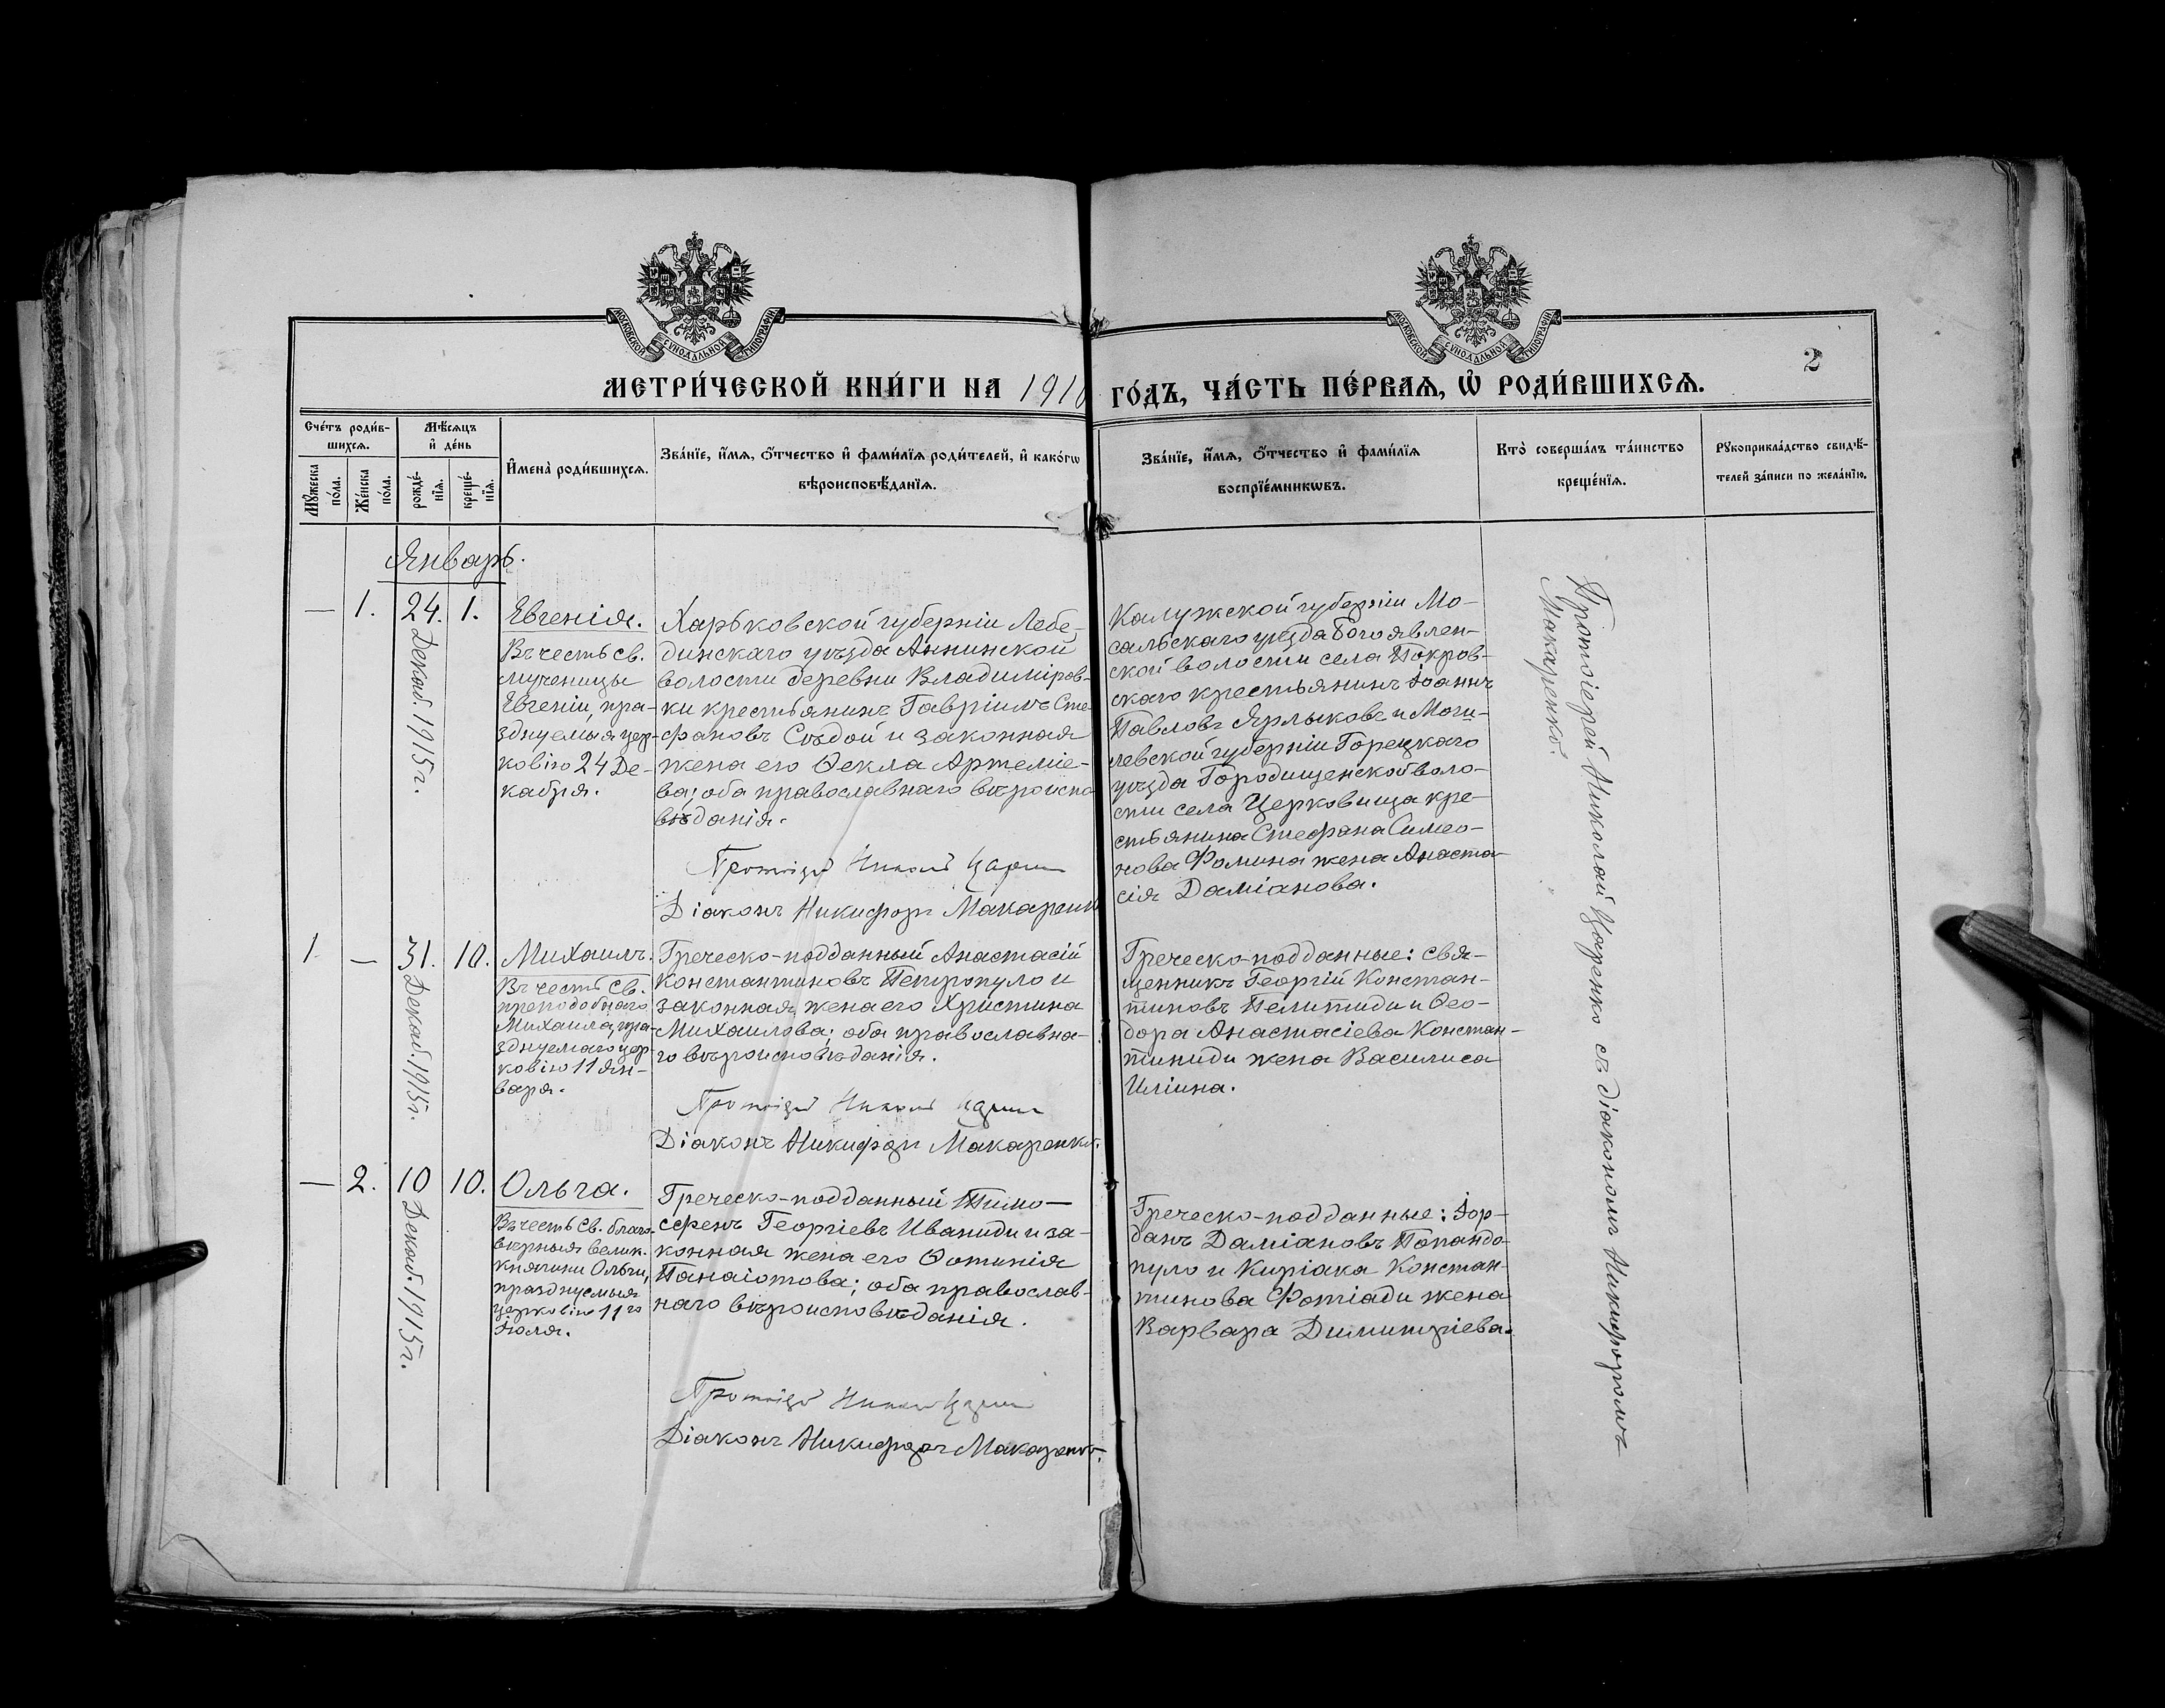 МОСКОВСКОЙ СУНОДАЛЬНОЙ ТИПОГРАФИИ
МОСКОВСКОЙ СУНОДАЛЬНОЙ ТИПОГРАФИИ
2
МЕТРИ́ЧЕСКОЙ КНИ́ГИ НА 191
ГО́ДЪ, ЧА́СТЬ ПЕ́РВАѦ, Ѡ҆ РОДИ́ВШИХСѦ.
Сче́тъ роди́в-
шихсѧ.
Мѣ́сѧцъ
и҆ де́нь
Мꙋ́жеска
по́ла.
Же́нска
по́ла.
рожде́-
нїѧ.
креще́-
нїѧ.
И҆мена̀ роди́вшихсѧ.
Зва́нїе, и҆́мѧ, о҆́тчество и҆ фами́лїѧ роди́телей, и҆ како́гѡ
вѣроисповѣ́данїѧ.
Зва́нїе, и҆́мѧ, о҆́тчество и҆ фами́лїѧ
воспрїе́мникѡвъ.
Кто̀ соверша́лъ та́инство
креще́нїѧ.
Рꙋкоприкла́дство свидѣ́-
телей за́писи по жела́нїю.
Январь.
— 1. 24. 1.
Декаб. 1915 г.
Евгенія.
Въ честь св.
мученицы
Евгеніи, пра-
зднуемыя цер-
ковію 24 Де-
кабря.
Харьковской губерніи Лебе-
динскаго уѣзда Аннинской
волости деревни Владиміров-
ки крестьянинъ Гавріилъ Сте-
фановъ Сѣдой и законная
жена его Ѳекла Артеміе-
ва; оба православнаго вѣроиспо
вѣданія.
Протоіерей Николай
Діаконъ Никифоръ Макаренко
Калужской губерніи Мо-
сальскаго уѣзда Богоявлен-
ской волости села Покров-
скаго крестьянинъ Іоаннъ
Павловъ Ярлыковъ и Моги-
левской губерніи Горецкаго
уѣзда Городищенской воло-
сти села Церковища кре-
стьянина Стефана Симео-
нова Фомина жена Анаста-
сія Даміанова.
Протоіерей Николай Царенко съ діакономъ Никифоромъ
Макаренко.
1. — 31. 10.
Декаб. 1915 г.
Михаилъ.
Въ честь св.
преподобнаго
Михаила, пра-
зднуемаго цер-
ковію 11 Ян-
варя.
Греческо-подданный Анастасій
Константиновъ Петропуло и
законная жена его Христина
Михаилова; оба православна-
го вѣроисповѣданія.
Протоіерей Николай
Діаконъ Никифоръ Макаренко.
Греческо-подданные: свя-
щенникъ Георгій Констан-
тиновъ Пелитиди и Ѳео-
дора Анастасіева Констан-
тиниди жена Василиса
Иліина.
— 2. 10 10.
Декаб. 1915 г.
Ольга.
Въ честь св. благо-
вѣрныя велик.
княгини Ольги,
празднуемыя
церковію 11го
Іюля.
Греческо-подданный Тимо-
сфенъ Георгіевъ Иваниди и за-
конная жена его Ѳотинія
Панаіотова; оба православ-
наго вѣроисповѣданія.
Протоіерей Николай
Діаконъ Никифоръ Макаренко.
Греческо-подданные: Іор-
данъ Даміановъ Попандо-
пуло и Киріака Констан-
тинова Фотіади жена
Варвара Димитріева.